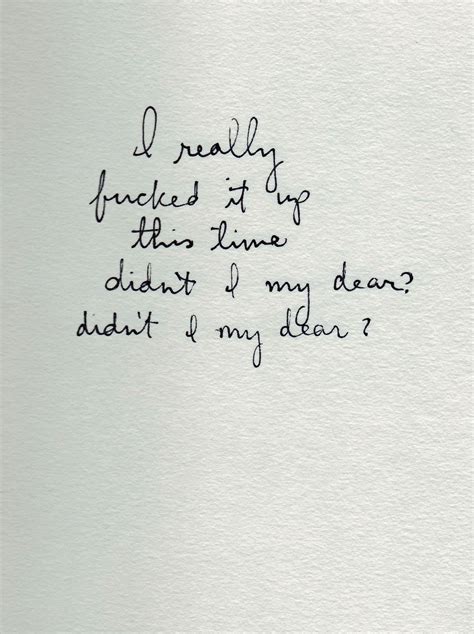 I really
fucked it up
this time
didn't I my dear?
didn't I my dear?